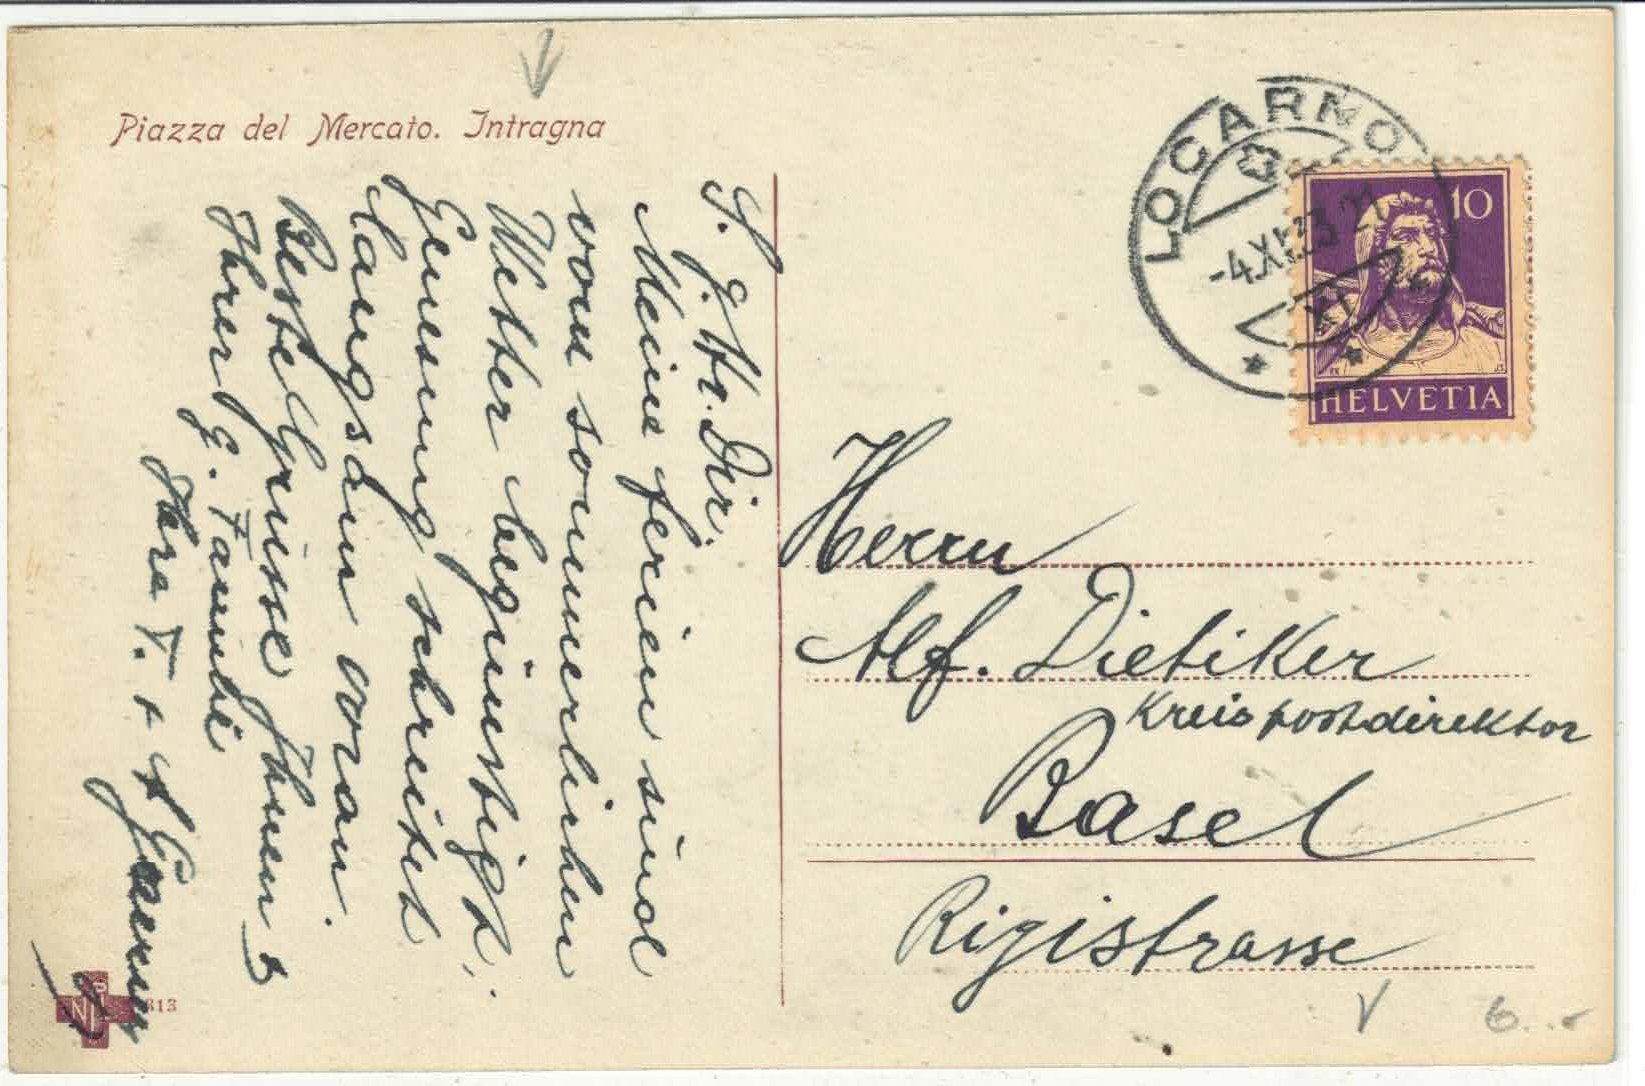 Piazza del Mercato. Intragna
S. g. Hr. Dir.
Meine Ferien sind
vom sommerlichen
Wetter begünstigt.
Genesung schreitet
langsam voran.
Beste Grüsse Ihnen &
Ihrer g. Familie
Ihre F. +
LOCARNO
-4.XI.23.21
XI
10
HELVETIA
Herrn
Alf. Dietiker
Kreispostdirektor
Basel
Rigistrasse
313
6..-